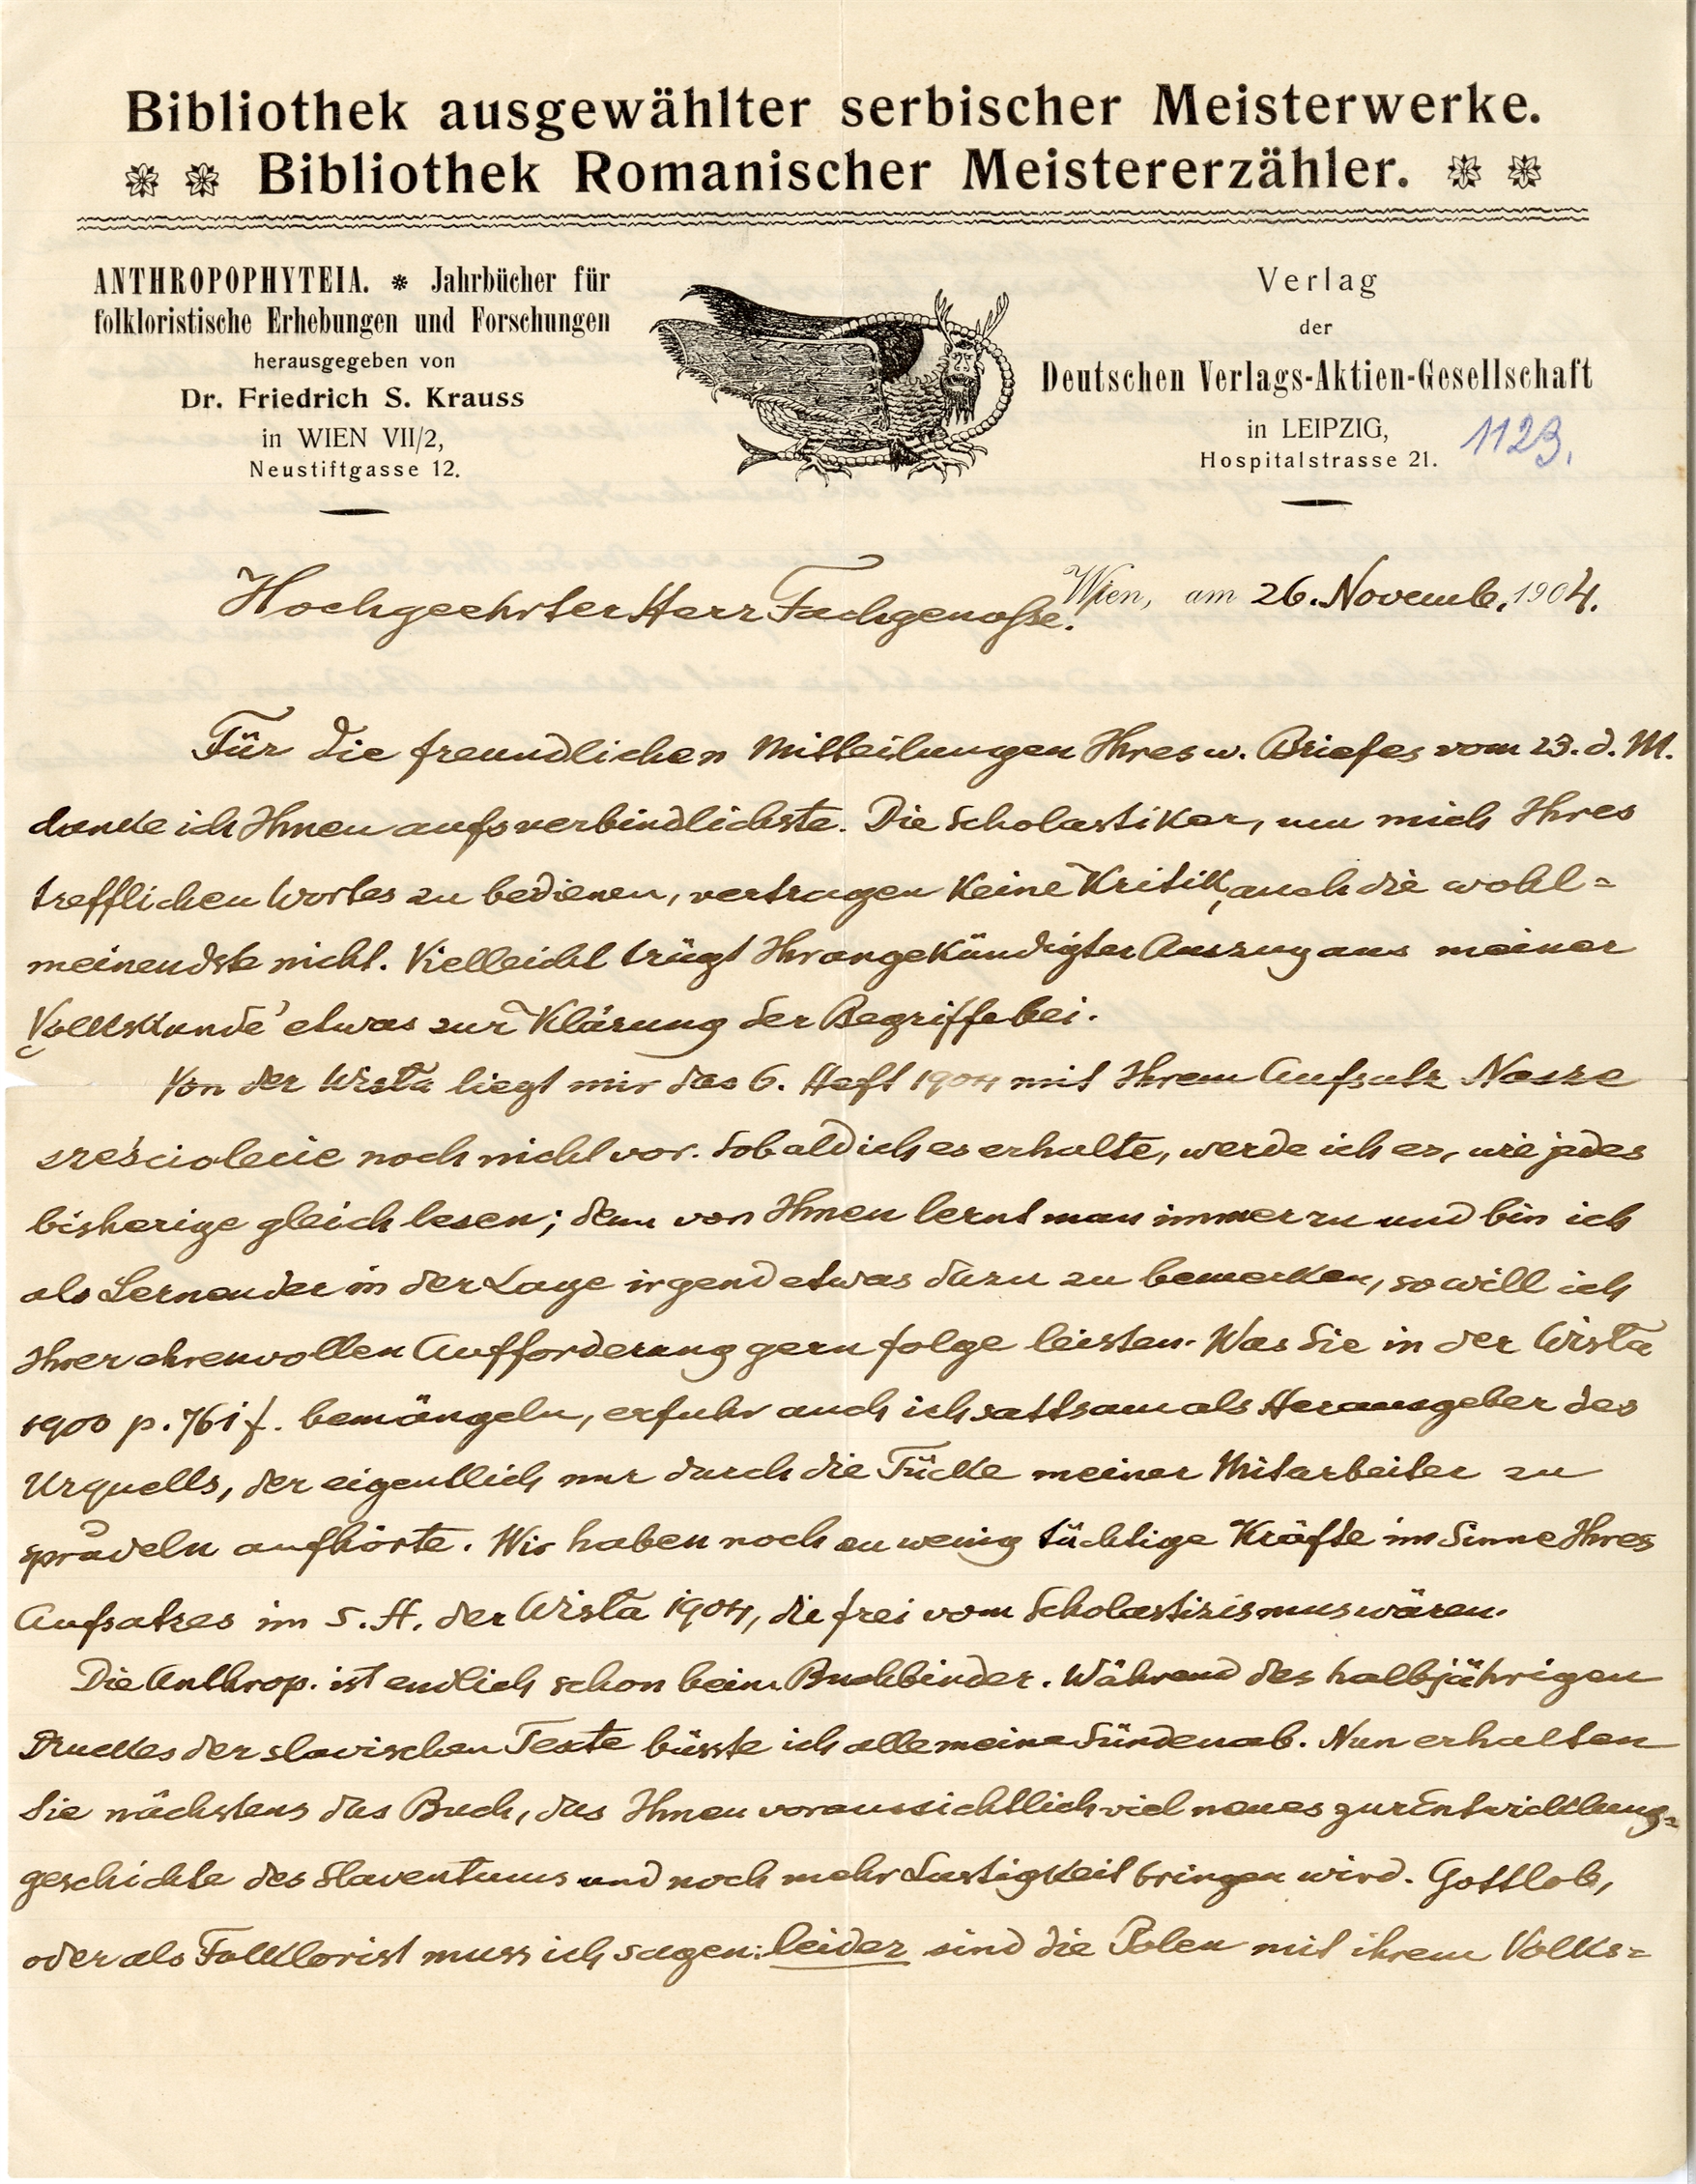 Bibliothek ausgewählter serbischer Meisterwerke.
Bibliothek Romanischer Meistererzähler.
ANTHROPOPHYTEIA. * Jahrbücher für
folkloristische Erhebungen und Forschungen
herausgegeben von
Dr. Friedrich S. Krauss
in WIEN VII/2,
Neustiftgasse 12.
Verlag
der
Deutschen Verlags-Aktien-Gesellschaft
in LEIPZIG,
Hospitalstrasse 21.
1123.
Wien, am 26. Novemb. 1904.
Hochgeehrter Herr Fachgenosse!
Für die freundlichen Mitteilungen Ihres w. Briefes vom 23. d. M.
danke ich Ihnen aufs verbindlichste. Die Scholastiker, um mich Ihres
trefflichen Wortes zu bedienen, vertragen keine Kritik, auch die wohl-
meinendste nicht. Vielleicht trägt Ihr angekündigter Auszug aus meiner
Volkskunde etwas zur Klärung der Begriffe bei.
Von der Wisła liegt mir das 6. Heft 1904 mit Ihrem Aufsatz Nasze
sześciolecie noch nicht vor. Sobald ich es erhalte, werde ich es, wie jedes
bisherige gleich lesen; denn von Ihnen lernt man immer zu und bin ich
als Lernender in der Lage irgend etwas dazu zu bemerken, so will ich
Ihrer ehrenvollen Aufforderung gern folge leisten. Was Sie in der Wisła
1900 p. 761 f. bemängeln, erfuhr auch ich sattsam als Herausgeber des
Urquells, der eigentlich nur durch die Tücke meiner Mitarbeiter zu
sprudeln aufhörte. Wir haben noch zu wenig tüchtige Kräfte im Sinne Ihres
Aufsatzes im 5. H. der Wisła 1904, die frei vom Scholastizismus wären.
Die Anthrop. ist endlich schon beim Buchbinder. Während des halbjährigen
Druckes der slavischen Texte büsste ich alle meine Sünden ab. Nun erhalten
Sie nächstens das Buch, das Ihnen voraussichtlich viel neues zur Entwicklung-
geschichte des Slaventums und noch mehr Lustigkeit bringen wird. Gottlob,
oder als Folklorist muss ich sagen: leider sind die Polen mit ihrem Volks-